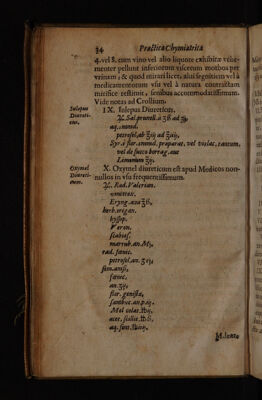 34 Practica Chymiatrica
4. vel 8. cum vino vel alio liquore exhibitæ vehe-
menter pellunt inferiorum viscerum morbos per
vrinam, & quod mirari licet, alui segnitiem vel à
medicamentorum vsu vel à natura contractam
mirifice restituit, senibus accommodatissimum.
Vide notas ad Crollium.
Iulepus
Diureti-
cus.
IX. Iulepus Diureticus.
℞. Sal. prunell. à ʒß ad
aq. , nond.
petrosel. ab ad
Syr. è flor. preparat. vel violar. tantum.
vel de succo borrag. aut
Limonium
Oxymel
Diureti-
cum.
X. Oxymel diureticum est apud Medicos non-
nullos in vsu frequentissimum.
℞. Rad. Valerian.
Eryng. ana
herb. origan.
hyssop.
Veron.
scabios.
marrub. an. M
rad. fœnic.
petrosel. an.
sem. anisi,
fœnic.
an.
flor. genistæ,
sambuc. an. p.
Mel colat.
acet. scillit.
aq. font.
M. lento